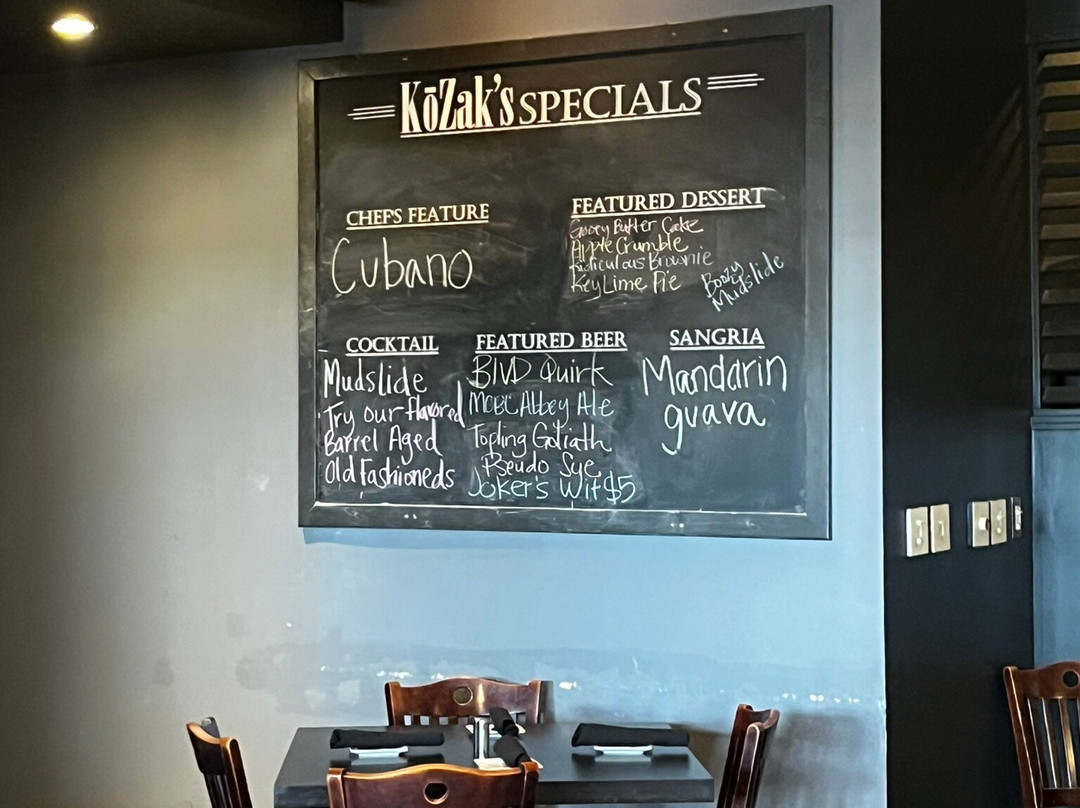 KōZak's SPECIALS
CHEF'S FEATURE
Cubano
FEATURED DESSERT
Gooey Butter Cake
Apple Crumble
Ridiculous Brownie
Key Lime Pie
Boozy
Mudslide
COCKTAIL
Mudslide
Try our flavored
Barrel Aged
Old Fashioneds
FEATURED BEER
BLVD Quirk
MCBC Abbey Ale
Topling Goliath
Pseudo Sue
Joker's Wit $5
SANGRIA
Mandarin
guava